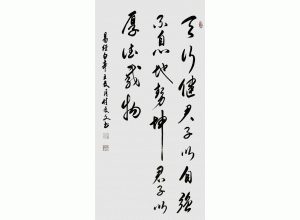 天行健君子以自强
不息地势坤君子以
厚德载物
易经句辛丑